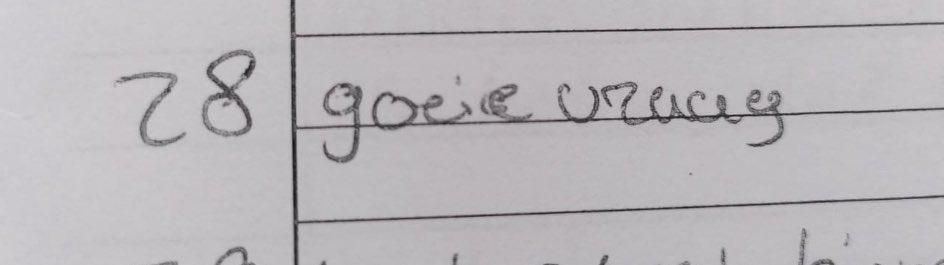 28 goeie vraag